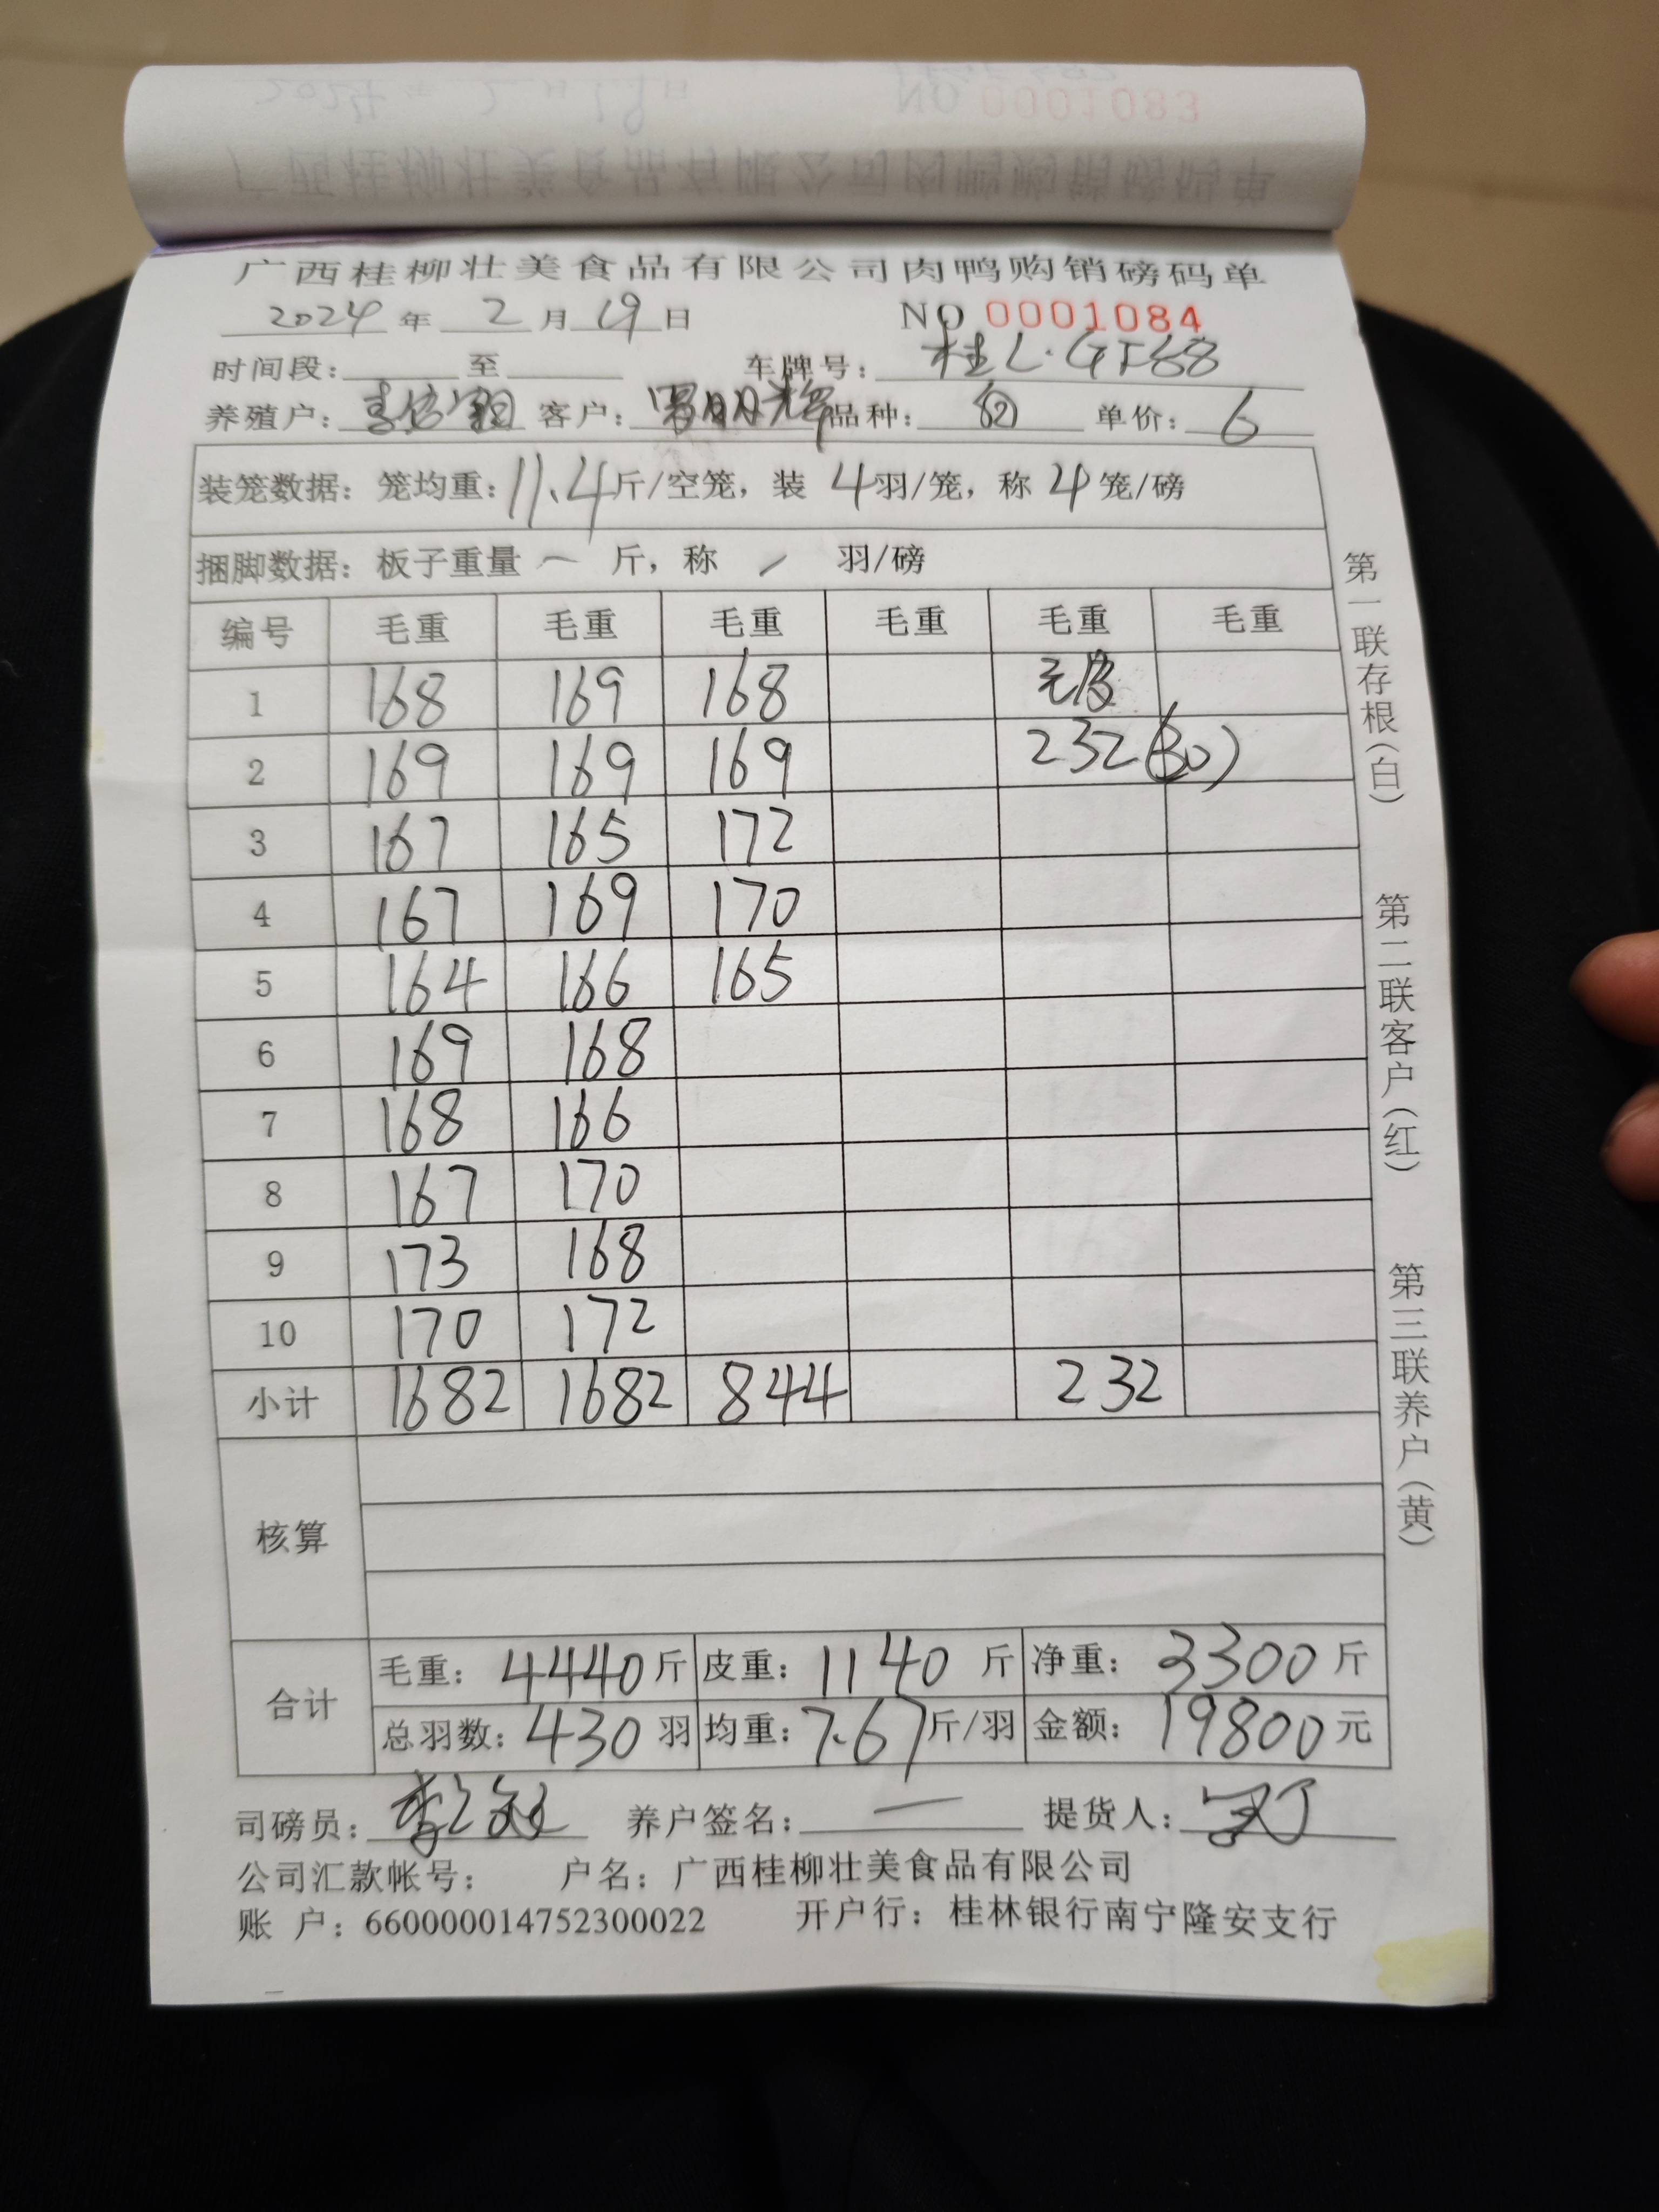 NO 0001083
广西桂柳壮美食品有限公司肉鸭购销磅码单
2024 年 2 月 19 日 NO 0001084
时间段： 至 车牌号：桂L·GT568
养殖户： 客户：罗明辉 品种： 单价：6
装笼数据：笼均重：11.4斤/空笼，装 4羽/笼，称 4 笼/磅
捆脚数据：板子重量 一 斤，称 / 羽/磅
编号 毛重 毛重 毛重 毛重 毛重 毛重
1 168 169 168 无皮
2 169 169 169 232(30)
3 167 165 172
4 167 169 170
5 164 166 165
6 169 168
7 168 166
8 167 170
9 173 168
10 170 172
小计 1682 1682 844 232
核算
合计
毛重：4440斤 皮重：1140 斤 净重：3300斤
总羽数：430羽 均重：7.67斤/羽 金额：19800元
司磅员： 养户签名：一 提货人：
公司汇款帐号： 户名：广西桂柳壮美食品有限公司
账 户：660000014752300022 开户行：桂林银行南宁隆安支行
第一联存根（白）
第二联客户（红）
第三联养户（黄）